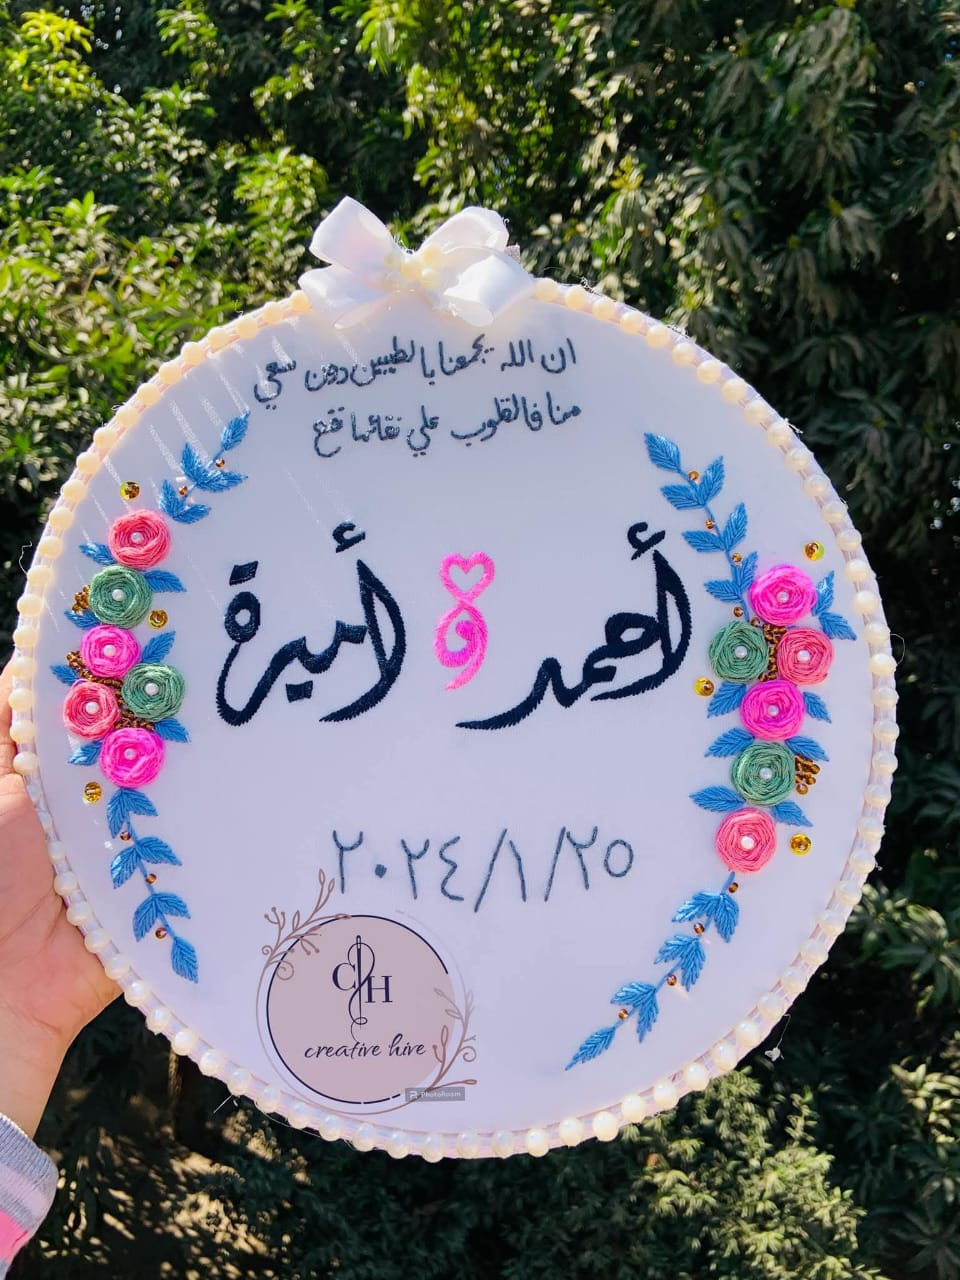 ان الله يجمعنا بالطيبين دون سعي
منا فالقلوب علي نقائها تقع
أحمد و أميرة
٢٠٢٤/١/٢٥
C H
creative hive
PhotoRoom